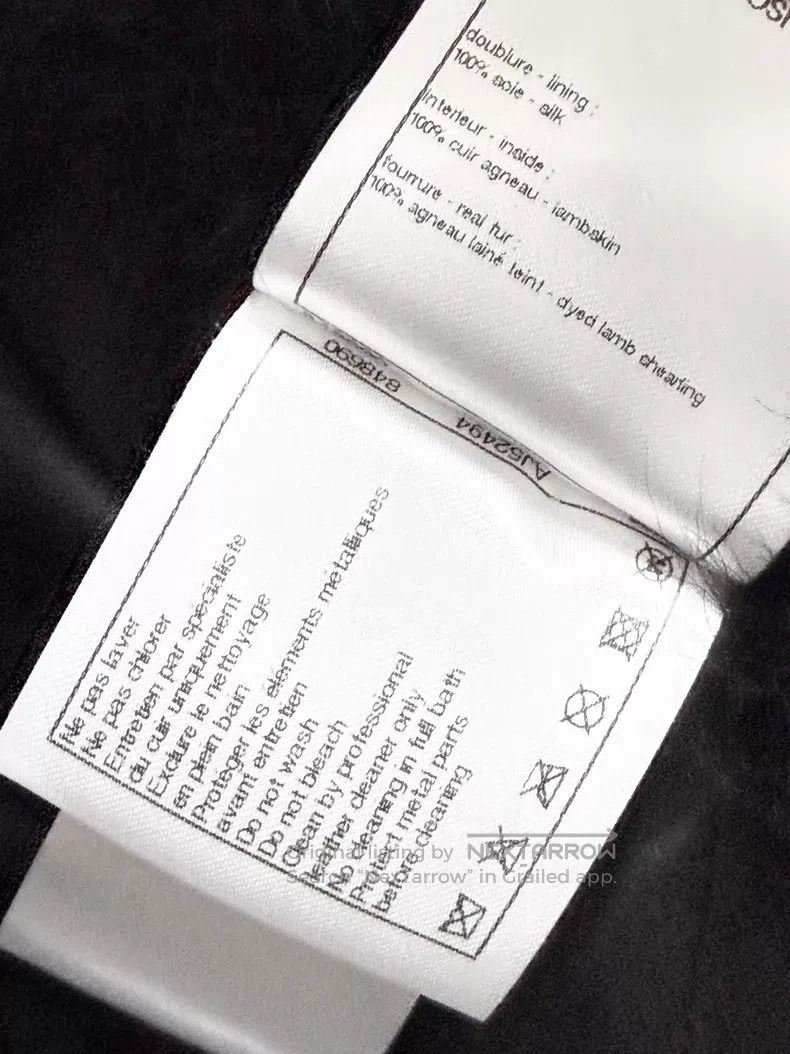 doublure - lining :
100% soie - silk
Interieur - inside :
100% cuir agneau - lambskin
fourrure - real fur :
100% agneau lainé teint - dyed lamb shearling
848690
AJ52494
Ne pas laver
Ne pas chlorer
Entretien par spécialiste
du cuir uniquement
Exclure le nettoyage
en plein bain
Protéger les éléments métalliques
avant entretien
Do not wash
Do not bleach
Clean by professional
leather cleaner only
No cleaning in full bath
Protect metal parts
before cleaning
Original listing by NEXTARROW
Search "NexTarrow" in Grailed app.